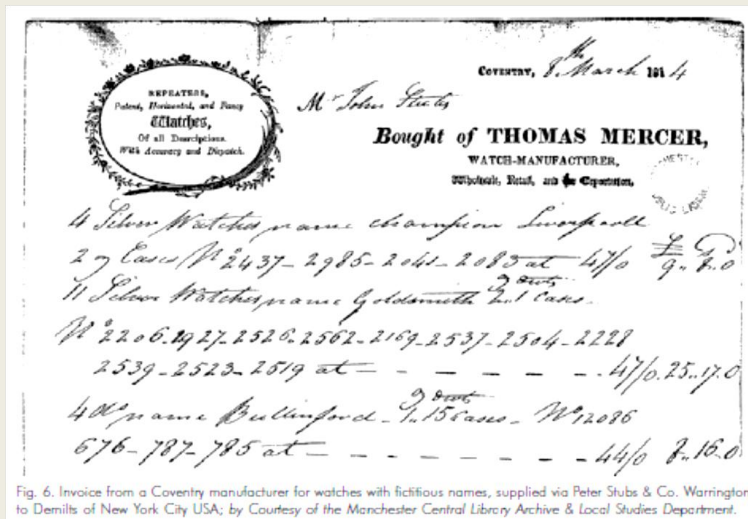 COVENTRY, 8th March 1814
REPEATERS,
Patent, Horizontal, and Fancy
Watches,
Of all Descriptions.
With Accuracy and Dispatch.
Mr John Stubs
Bought of THOMAS MERCER,
WATCH-MANUFACTURER,
Wholesale, Retail, and for Exportation,
4 Silver Watches name Champion Liverpool
2 oz Cases No 2437 - 2985 - 2041 - 2083 at 47/0 £ 9.. 8.. 0
11 Silver Watches name Goldsmith 2.1 Cases.
No 2206. 1927 - 2526 - 2562 - 2169 - 2537 - 2504 - 2228
2539 - 2523 - 2519 at - - - - - - 47/0. 25.. 17.. 0
4 do name Bullingford - 1.15 Cases - No 12086
676 - 787 - 785 at - - - - - - - 44/0 8.. 16.. 0
Fig. 6. Invoice from a Coventry manufacturer for watches with fictitious names, supplied via Peter Stubs & Co. Warrington
to Demilts of New York City USA; by Courtesy of the Manchester Central Library Archive & Local Studies Department.